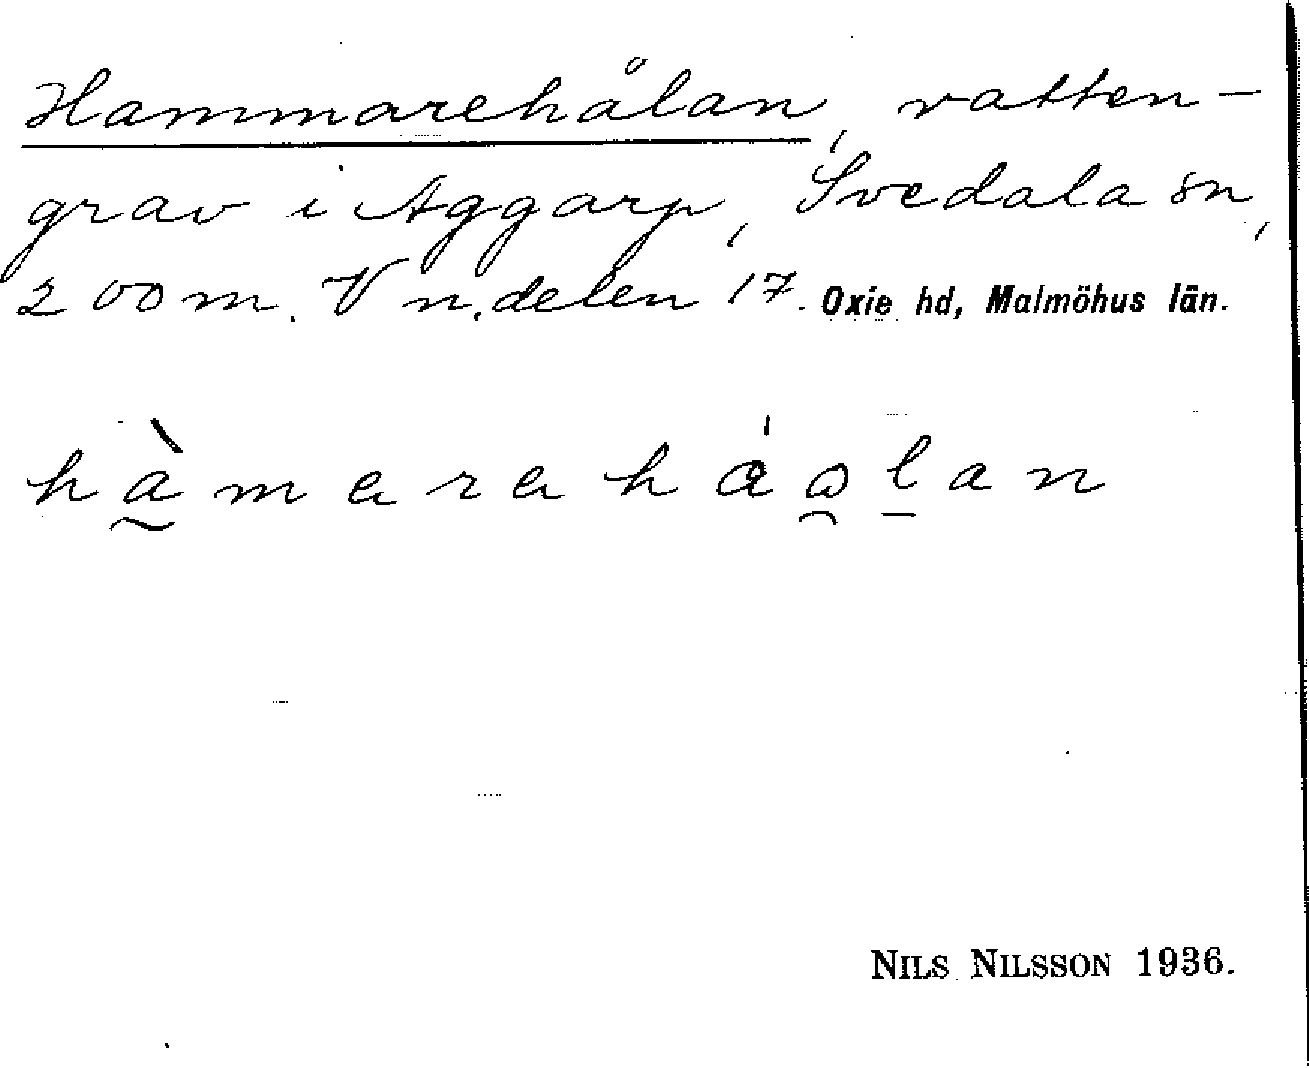 Hammarehålan, vatten-
grav i Aggarp, Svedala sn,
200 m. V n. delen 17. Oxie hd, Malmöhus län.
hàmaraháo̯lan
NILS NILSSON 1936.